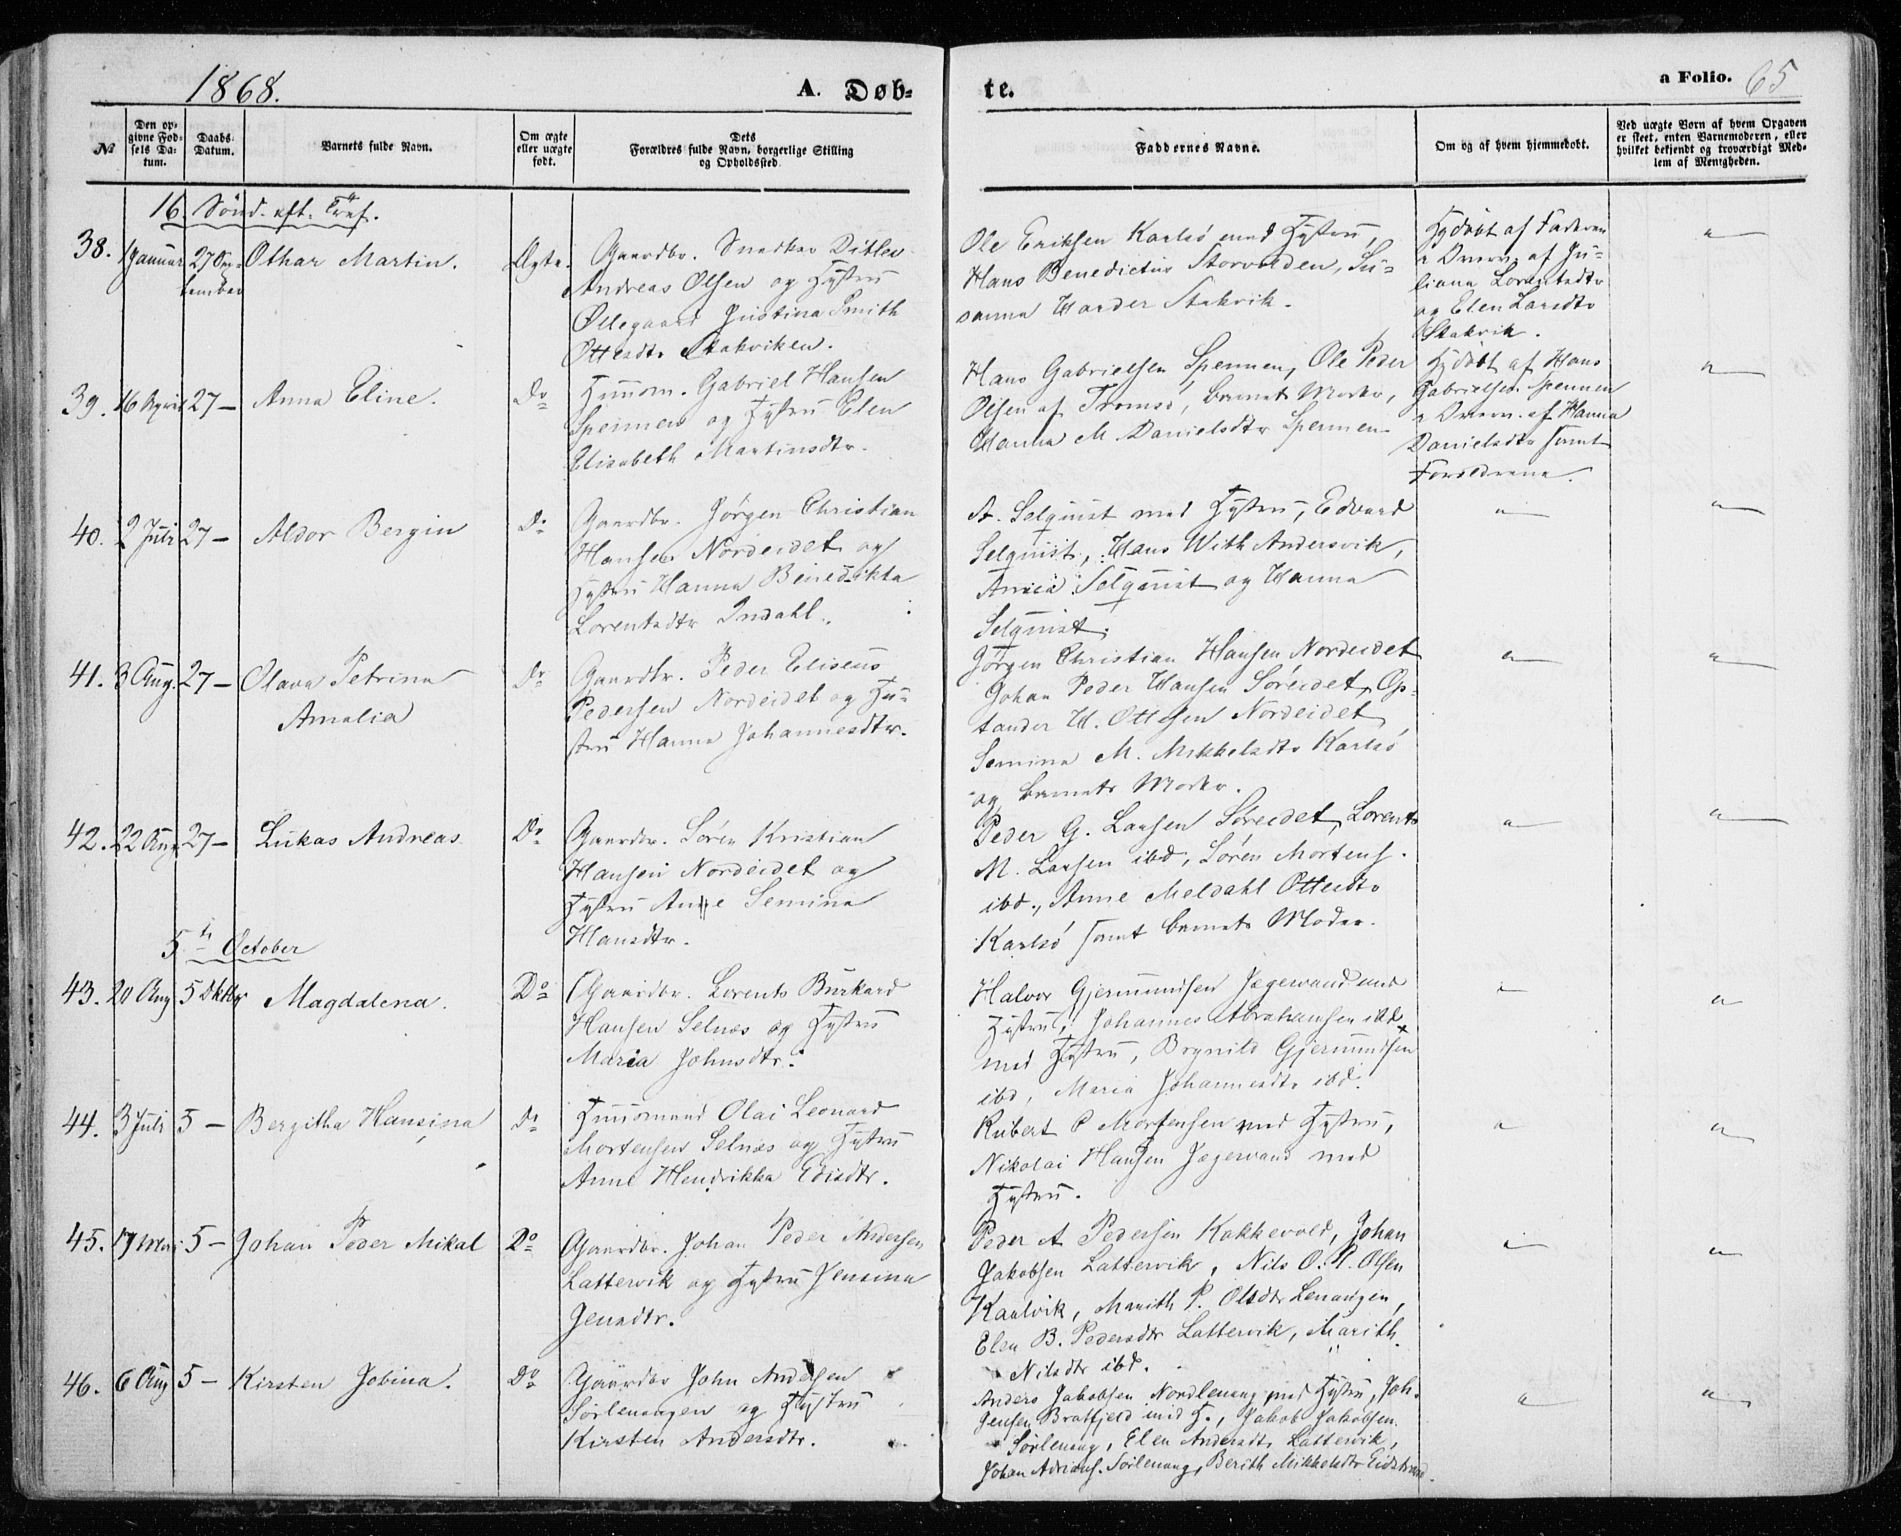 1868.
A. Døb-
te.
a Folio. 65
№
Den op-
givne Fød-
sels Da-
tum.
Daabs
Datum.
Barnets fulde Navn.
Om ægte
eller uægte
født.
Dets
Forældres fulde Navn, borgerlige Stilling
og Opholdssted.
Faddernes Navne.
Om og af hvem hjemmedøbt.
Ved uægte Børn af hvem Opgaven
er skeet, enten Barnemoderen, eller
hvilket bekjendt og troværdigt Med-
lem af Menigheden.
16. Sönd. eft. Tref.
38. 1 Januar 27 Sep-
tember
Othar Martin.
Ægte.
Gaardbr. Snedker Ditlev
Andreas Olsen og Hustru
Øllegaard Justina Smith
Ottesdtr Stakviken.
Ole Eriksen Karlsö med Hustru,
Hans Benedictus Storvolden, Su-
sanna Harder Stakvik.
Hjdöbt af Faderen
i Overv. af Ju-
liana Lorentsdtr
og Elen Larsdtr
Stakvik.
39. 16 April 27 —
Anna Eline.
Do
Huusm. Gabriel Hansen
Spennen og Hustru Elen
Elisabeth Martinsdtr.
Hans Gabrielsen Spennen, Ole Peder
Olsen af Tromsö, barnets Moder,
Hanna M Danielsdtr Spennen
Hjdöbt af Hans
Gabrielsen Spennen
i Overv. af Hanna
Danielsdtr samt
Forældrene.
40. 2 Juli 27 —
Aldor Bergin
Do
Gaardbr. Jørgen Christian
Hansen Nordeidet og
Hustru Hanna Benedikta
Lorentsdtr Indahl.
A. Selquist med Hustru, Edvard
Selquist, Hans With Andersvik,
Selquist og Hanna
Selquist.
41. 3 Aug. 27 —
Olava Petrina
Amalia
Do
Gaardbr. Peder Eliseus
Pedersen Nordeidet og Hu-
stru Hanna Johannesdtr.
Jørgen Christian Hansen Nordeidet
Johan Peder Hansen Söreidet, Op-
tander H. Ottesen Nordeidet
Semina M. Mikkelsdtr Karlsö
og barnets Moder.
42. 22 Aug 27 —
Lukas Andreas
Do
Gaardbr. Sören Kristian
Hansen Nordeidet og
Hustru Anne Semina
Hansdtr.
Peder G. Larsen Söreidet, Lorents
M. Larsen ibd, Sören Mortens.
ibd., Anne Meldahl Ottesdtr
Karlsö samt barnets Moder.
5te October
43. 20 Aug 5 Oktbr
Magdalena.
Do
Gaardbr. Lorents Burkard
Hansen Selnes og Hustru
Maria Johnsdtr.
Halvor Gjermundsen Jægervand med
Hustru, Johannes Abrahamsen ibd
med Hustru, Brynild Gjermundsen
ibd, Maria Johannesdtr ibd.
44. 3 Juli 5 —
Bergitha Hansina
Do
Huusmand Olai Leonard
Mortensen Selnes og Hustru
Anne Hendrikka Edisdtr.
Rubert P Mortensen med Hustru,
Nikolai Hansen Jægervand med
Hustru.
45. 17 Mai 5 —
Johan Peder Mikal
Do
Gaardbr. Johan Peder Andersen
Lattervik og Hustru Jensina
Jensdtr.
Peder A Pedersen Kakkevold, Johan
Jakobsen Lattervik, Nils O. P. Olsen
Kaalvik, Marith P. Olsdtr Lenangen,
Elen B. Pedersdtr Lattervik, Marith
Nilsdtr ibd.
46. 6 Aug 5 —
Kirsten Jobina.
Do
Gaardbr John Andersen
Sörlenangen og Hustru
Kirsten Andersdtr.
Anders Jakobsen Nordlenang med Hustru, Joh.
Jensen Bratfjeld med H., Jakob Jakobsen
Sörlenang, Elen Andersdtr Lattervik,
Johan Adrians. Sörlenang, Berith Mikkelsdtr Eidstrand.